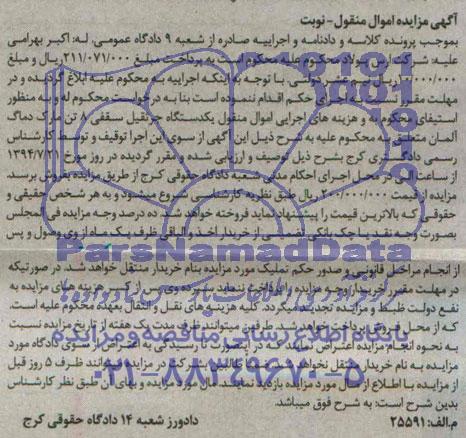 آگهی مزایده اموال منقول - نوبت
بموجب پرونده کلاسه و دادنامه و اجراییه صادره از شعبه ۹ دادگاه عمومی. له: اکبر بهرامی
علیه: شرکت ارس فولاد محکوم علیه محکوم است به پرداخت مبلغ ۲۱۱/۰۷۱/۰۰۰ ریال و مبلغ
ریال بابت نیم عشر دولتی. با توجه به اینکه اجراییه به محکوم علیه ابلاغ گردیده و در
مهلت مقرر نسبت به اجرای حکم اقدام ننموده است بنا به درخواست محکوم له و به منظور
استیفای محکوم به و هزینه های اجرایی اموال منقول یکدستگاه جرثقیل سقفی ۸ تن مارک دماگ
آلمان متعلق به محکوم علیه به شرح ذیل این آگهی از سوی این اجرا توقیف و توسط کارشناس
رسمی دادگستری کرج بشرح ذیل توصیف و ارزیابی شده و مقرر گردیده در روز مورخ ۱۳۹۴/۷/۲۱
از ساعت الی در محل اجرای احکام مدنی شعبه دادگاه حقوقی کرج از طریق مزایده بفروش برسد.
مزایده از قیمت ۲۰۰/۰۰۰/۰۰۰ ریال طبق نظریه کارشناسی شروع میشود و به هر شخص حقیقی و
حقوقی که بالاترین قیمت را پیشنهاد نماید فروخته خواهد شد. ده درصد وجه مزایده فی المجلس
بصورت وجه نقد یا چک بانکی تضمینی از خریدار اخذ و الباقی ظرف یک ماه از وی وصول و پس
از انجام مراحل قانونی و صدور حکم تملیک مورد مزایده بنام خریدار منتقل خواهد شد. در صورتیکه
در مهلت مقرر خریدار وجه مزایده را پرداخت ننماید سپرده وی پس از کسر هزینه های مزایده به
نفع دولت ضبط و مزایده تجدید میگردد. کلیه هزینه های نقل و انتقال بعهده محکوم علیه است.
که از محل فروش پرداخت خواهد شد. طرفین میتوانند ظرف مدت یک هفته از تاریخ مزایده نسبت
به نحوه انجام مزایده اعتراض نمایند در اینصورت تا رسیدگی به اعتراض دادگاه مورد
مزایده به نام خریدار منتقل نخواهد شد. ضمنا طالبین شرکت در مزایده میتوانند ظرف ۵ روز قبل
از مزایده با اطلاع از محل مورد مزایده بازدید نمایند. مال مورد مزایده و بهای آن طبق نظر کارشناس
بدین شرح است: به شرح فوق میباشد.
م.الف: ۲۵۵۹۱ دادورز شعبه ۱۴ دادگاه حقوقی کرج
ParsNamadData
پایگاه اطلاع رسانی مناقصه و مزایده
۰۲۱-۸۸۳۴۹۶۷۰-۵